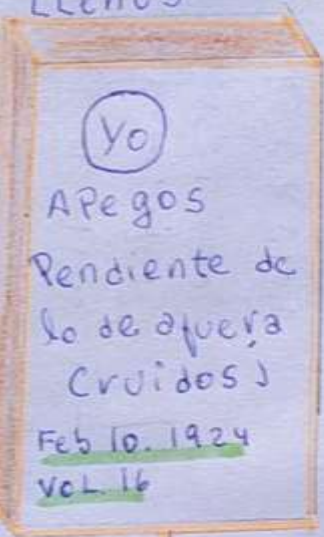 LLenos
Yo
APegos
Pendiente de
lo de afuera
(ruidos)
Feb 10. 1924
VOL 16